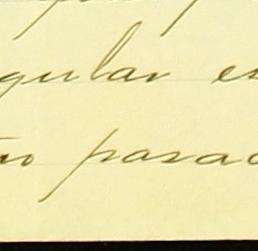 gular es
ro pasad